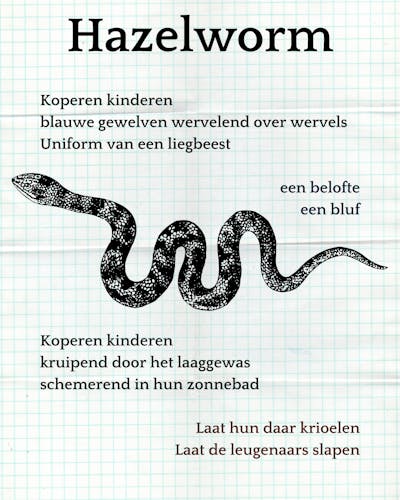 Hazelworm
Koperen kinderen
blauwe gewelven wervelend over wervels
Uniform van een liegbeest
een belofte
een bluf
Koperen kinderen
kruipend door het laaggewas
schemerend in hun zonnebad
Laat hun daar krioelen
Laat de leugenaars slapen